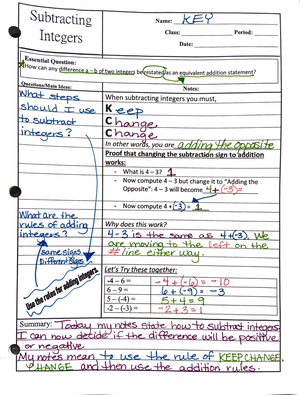 Subtracting
Integers
Name: KEY
Class: Period:
Date:
Essential Question:
How can any difference a – b of two integers be restated as an equivalent addition statement?
Questions/Main Ideas:
Notes:
What steps
should I use
to subtract
integers?
When subtracting integers you must,
Keep
Change,
Change
In other words, you are adding the opposite
Proof that changing the subtraction sign to addition
works:
- What is 4 – 3? 1
- Now compute 4 – 3 but change it to "Adding the
Opposite": 4 – 3 will become 4+(-3)=
- Now compute 4+(-3) = 1
What are the
rules of adding
integers?
Same Signs
Different Signs
Use the rules for adding integers.
Why does this work?
4-3 is the same as 4+(-3). We
are moving to the left on the
# line either way.
Let's Try these together:
-4 – 6 = -4+(-6) = -10
6 – 9 = 6+(-9) = -3
5 – (-4) = 5+4 = 9
-2 – (-3) = -2+3 = 1
Summary: Today my notes state how to subtract integers
I can now decide if the difference will be positive
or negative.
My notes mean to use the rule of KEEP CHANGE
CHANGE and then use the addition rules.